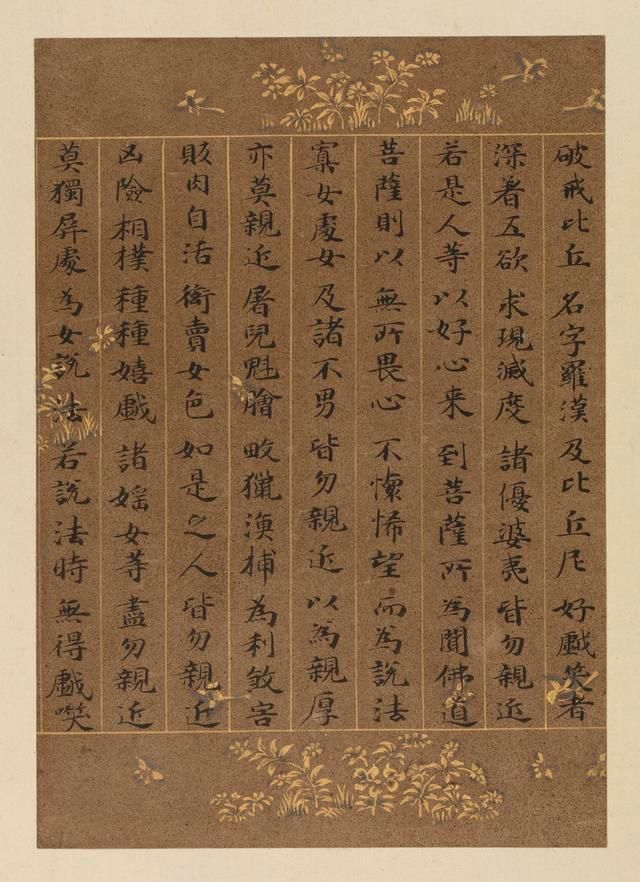 破戒比丘 名字羅漢 及比丘尼 好戱笑者
深著五欲 求現滅度 諸優婆夷 皆勿親近
若是人等 以好心来 到菩薩所 為聞佛道
菩薩則以 無所畏心 不懷悕望 而為說法
寡女處女 及諸不男 皆勿親近 以為親厚
亦莫親近 屠兒魁膾 畋獵漁捕 為利煞害
販肉自活 衒賣女色 如是之人 皆勿親近
凶險相撲 種種嬉戱 諸婬女等 盡勿親近
莫獨屏處 為女說法 若說法時 無得戱笑